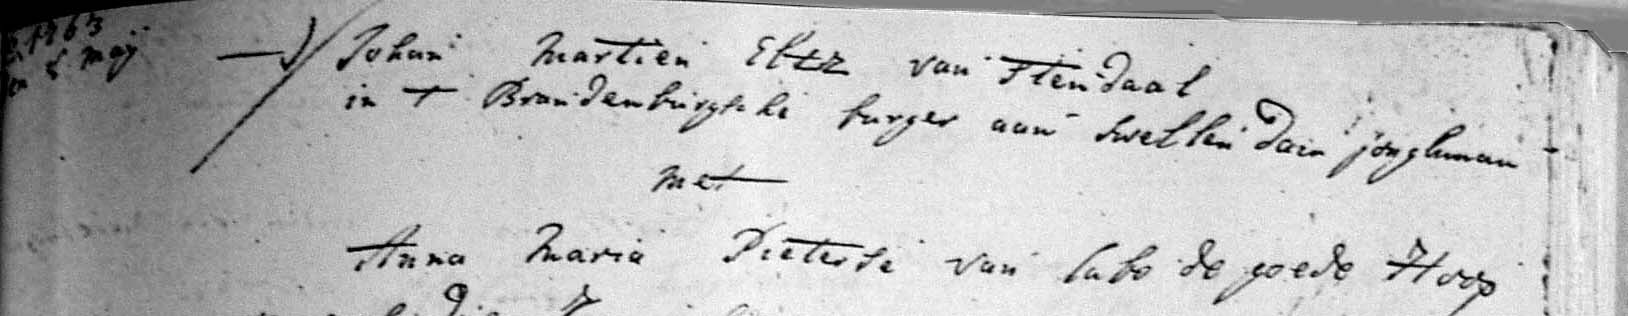 1763
5 maij
Johan Martien Eltz van Stendaal
in t Brandenburgsche burger aan Swellendam jongluman
met
Anna Maria Pieterse van Cabo de goede Hoop